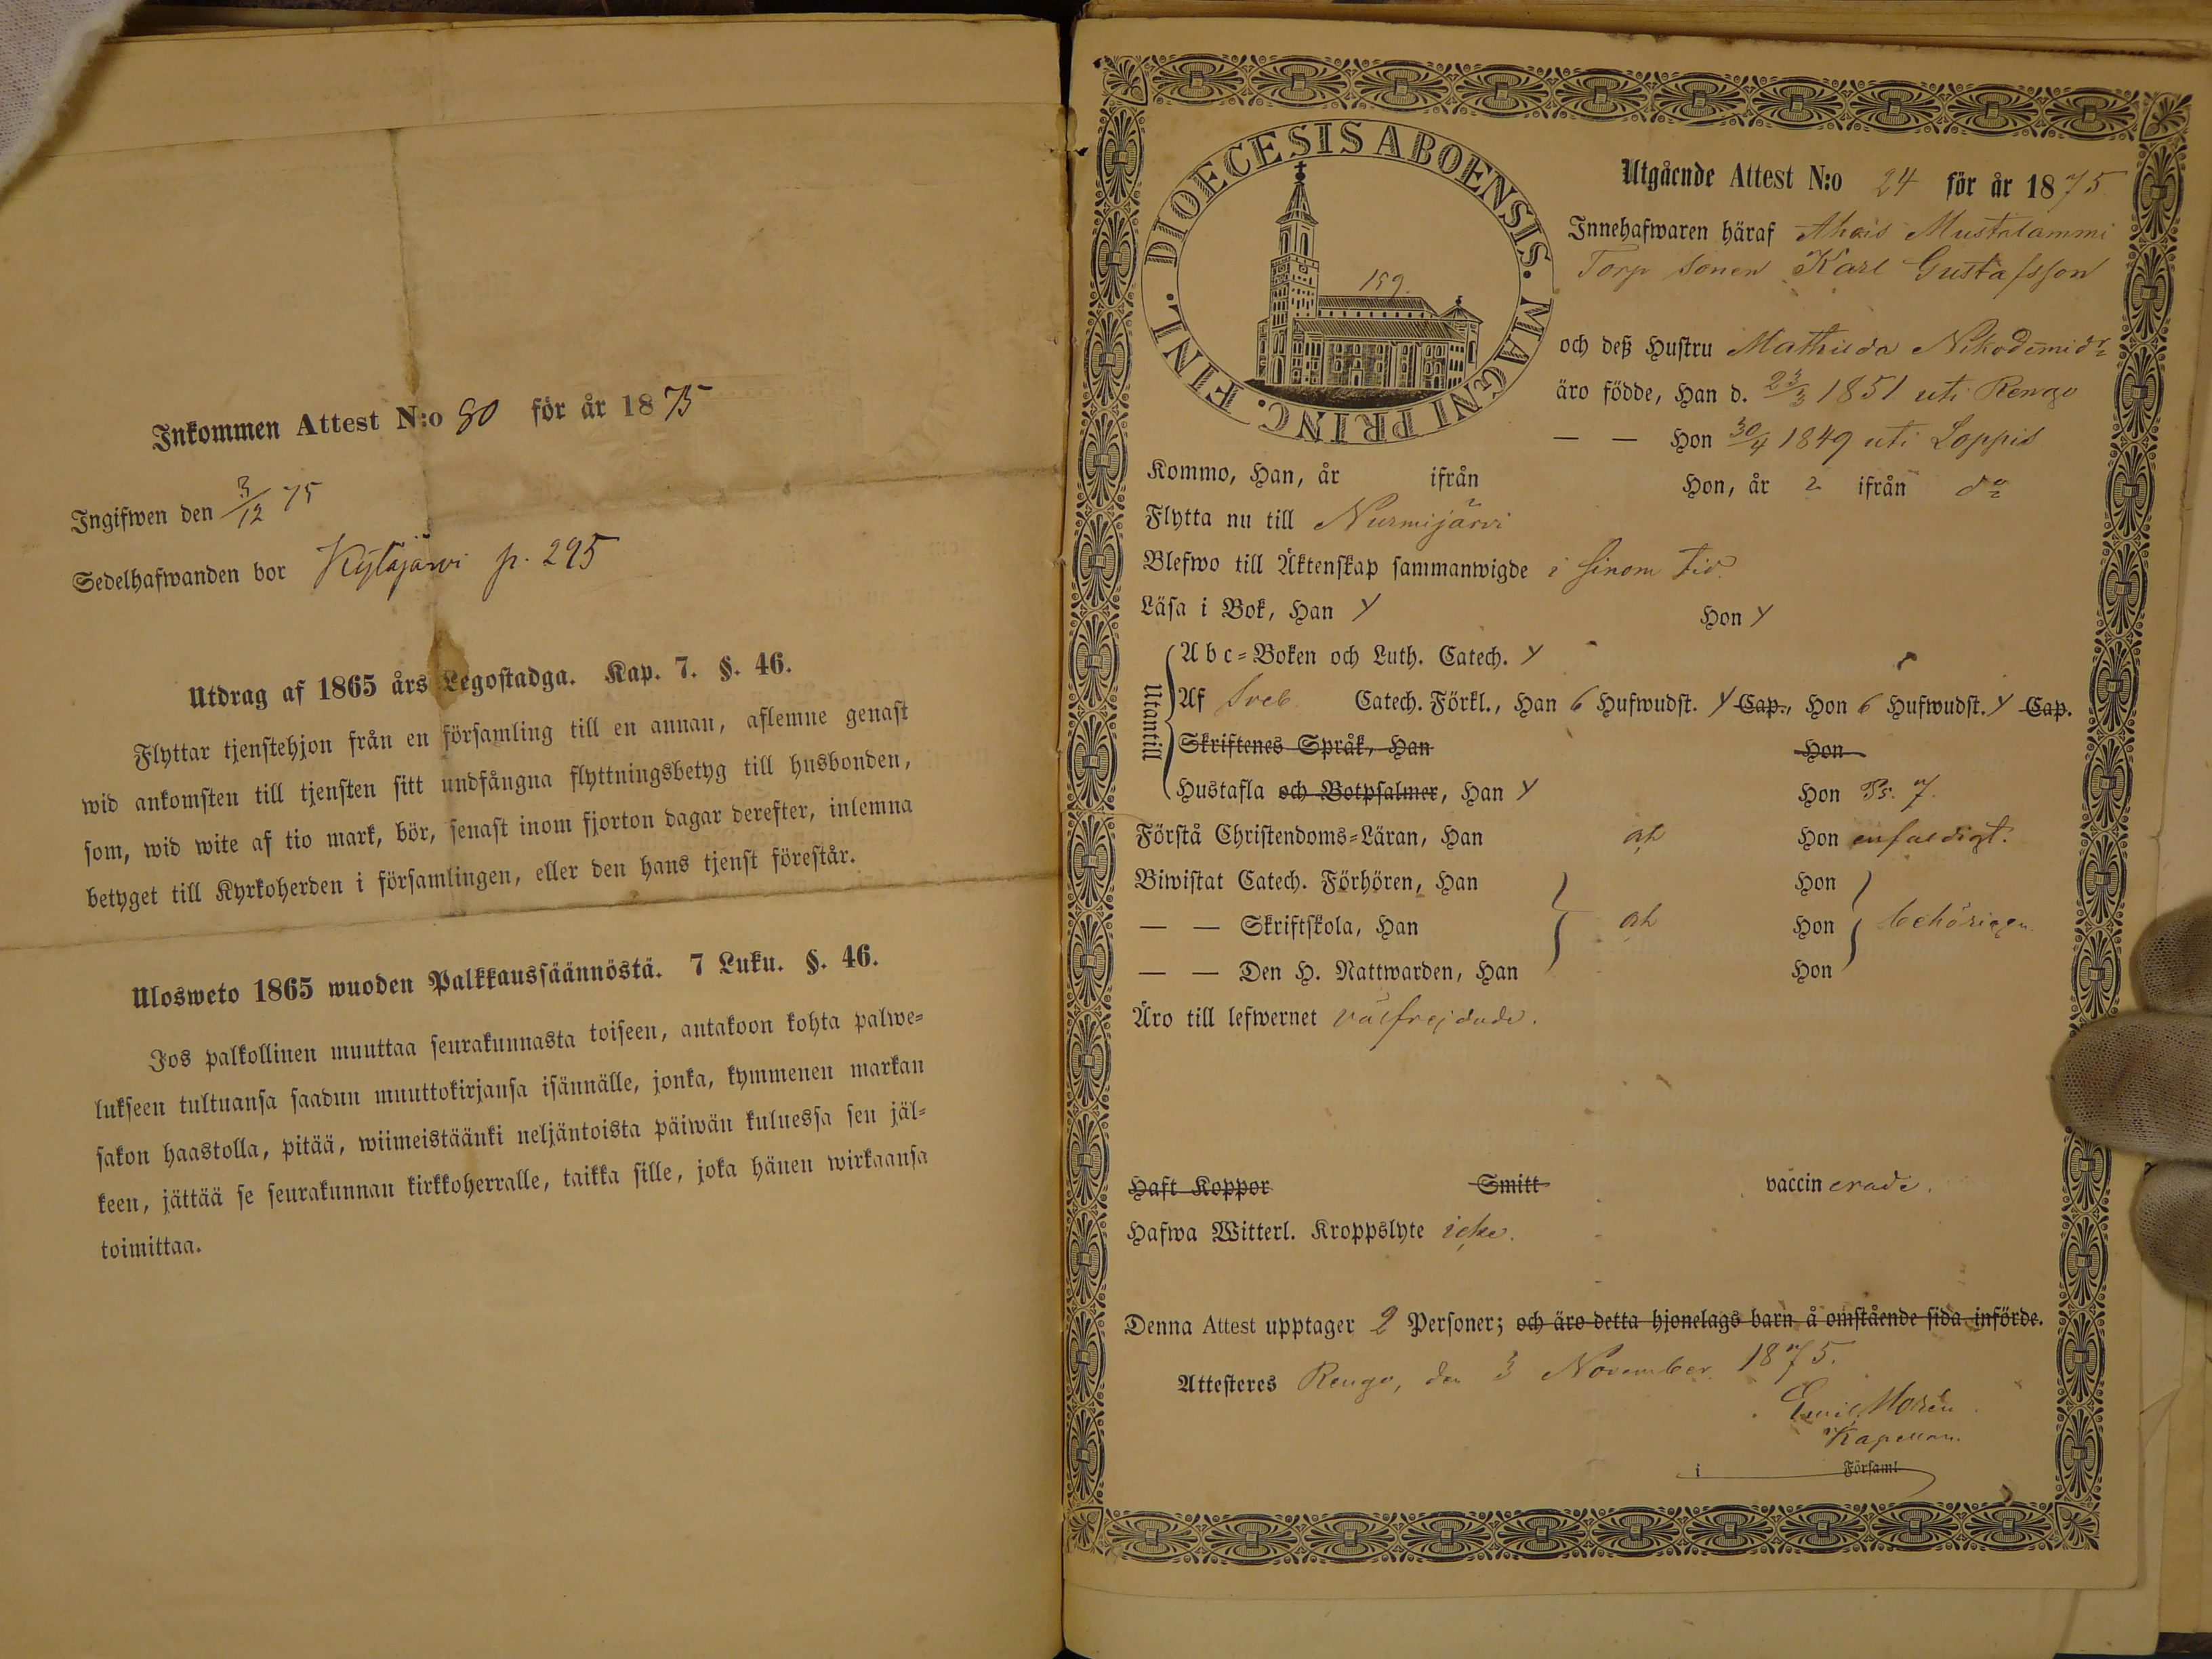 Inkommen Attest N:o 80 för år 1875
Ingifwen den 3/12 75
Sedelhafwanden bor Kytäjärvi p. 295
Utdrag af 1865 års Legostadga. Kap. 7. §. 46.
Flyttar tjenstehjon från en församling till en annan, aflemne genast
wid ankomsten till tjensten sitt undfångna flyttningsbetyg till husbonden,
som, wid wite af tio mark, bör, senast inom fjorton dagar derefter, inlemna
betyget till Kyrkoherden i församlingen, eller den hans tjenst förestår.
Ulosweto 1865 wuoden Palkkaussäännöstä. 7 Luku. §. 46.
Jos palkollinen muuttaa seurakunnasta toiseen, antakoon kohta palwe-
lukseen tultuansa saadun muuttokirjansa isännälle, jonka, kymmenen markan
sakon haastolla, pitää, wiimeistäänki neljäntoista päiwän kuluessa sen jäl-
keen, jättää se seurakunnan kirkkoherralle, taikka sille, joka hänen wirkaansa
toimittaa.
DIOECESIS ABOENSIS. MAGNI PRINC. FINL.
159.
Utgående Attest N:o 24 för år 1875
Innehafwaren häraf Ahois Mustalammi
Torp sonen Karl Gustafsson
och deß Hustru Mathilda Nikodemidr
äro födde, Han d. 23/3 1851 uti Rengo
— — Hon 30/4 1849 uti Loppis
Kommo, Han, år ifrån Hon, år 2 ifrån do
Flytta nu till Nurmijärvi
Blefwo till Äktenskap sammanwigde i sinom tid.
Läsa i Bok, Han Y Hon Y
Utantill
Abc-Boken och Luth. Catech. Y
Af Sveb. Catech. Förkl., Han 6 Hufwudst. Y Cap., Hon 6 Hufwudst. Y Cap.
Skriftenes Språk, Han Hon
Hustafla och Botpsalmer, Han Y Hon Ps. 7.
Förstå Christendoms-Läran, Han Hon enfaldigt.
Biwistat Catech. Förhören, Han Hon
— — Skriftskola, Han Hon behörigen.
— — Den H. Nattwarden, Han Hon
Äro till lefwernet välfrejdade.
Haft Koppor Smitt vaccinerade.
Hafwa Witterl. Kroppslyte icke.
Denna Attest upptager 2 Personer; och äro detta hjonelags barn å omstående sida införde.
Attesteres Rengo, den 3 November 1875.
Emil
Kapellan.
i Församl